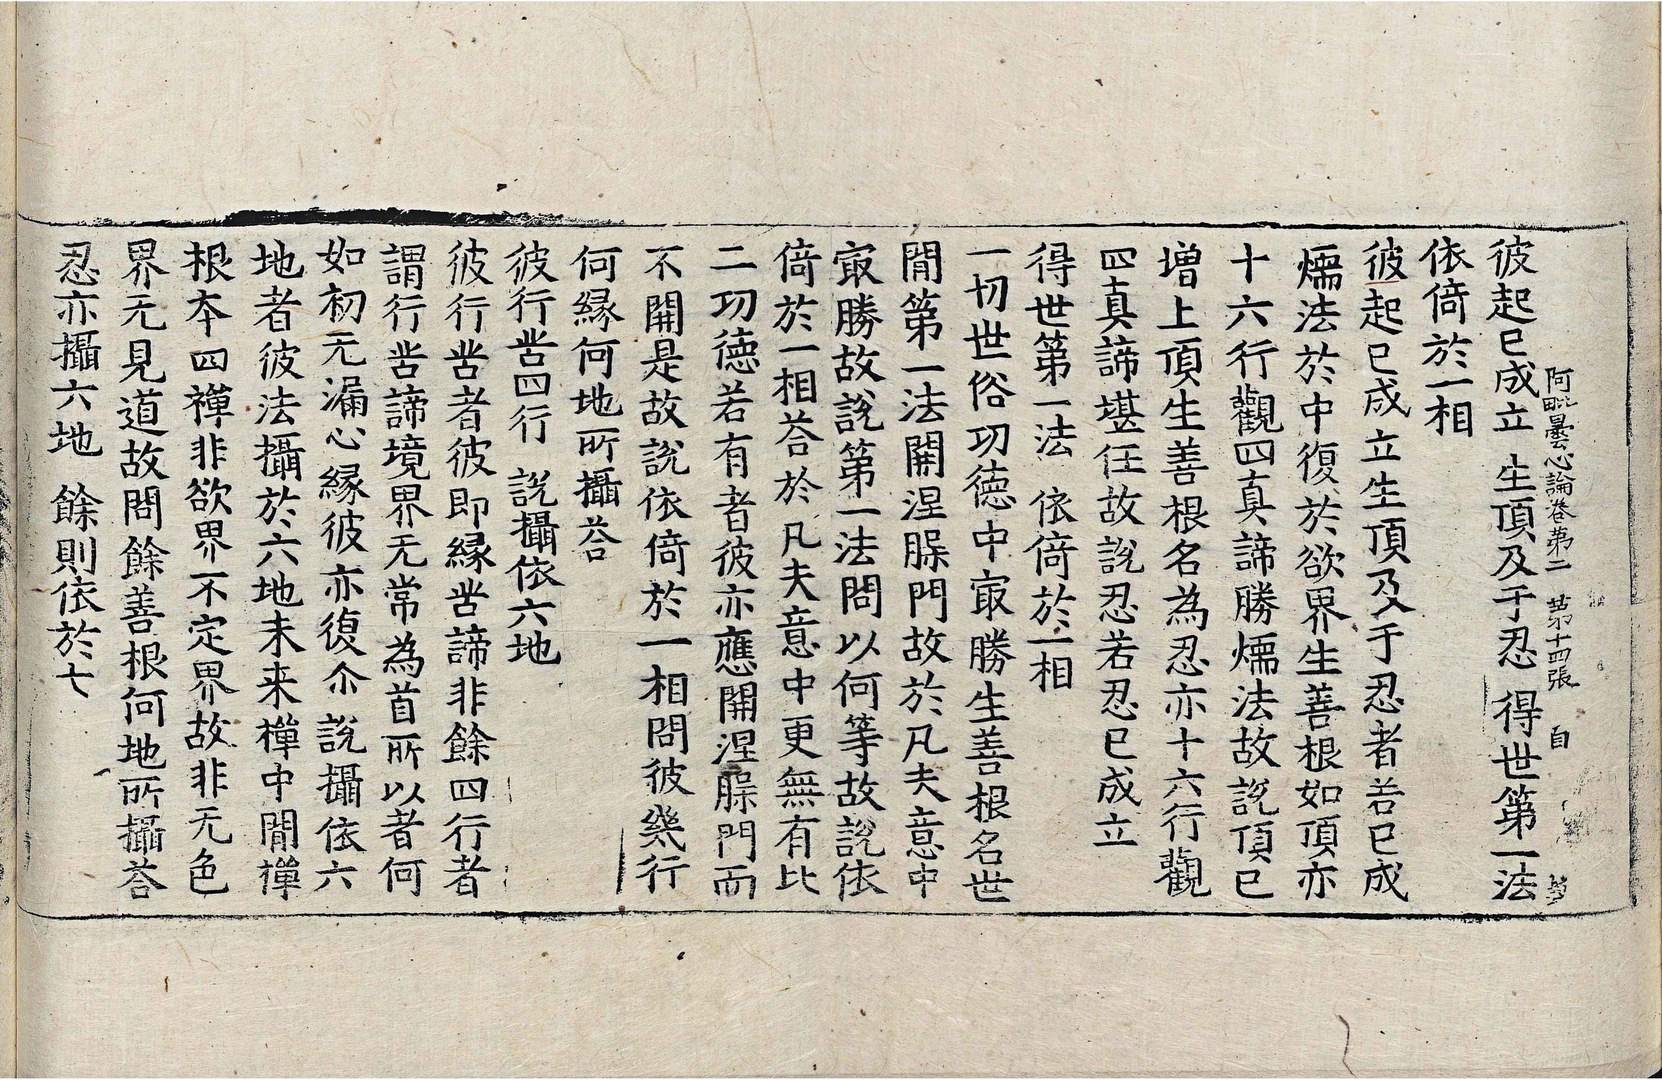 阿毗曇心論卷第二 第十四張 自
彼起已成立 生頂及于忍 得世第一法
依倚於一相
彼起已成立生頂及于忍者若已成
煗法於中復於欲界生善根如頂亦
十六行觀四真諦勝煗法故說頂已
增上頂生善根名為忍亦十六行觀
四真諦堪任故說忍若忍已成立
得世第一法 依倚於一相
一切世俗功德中㝡勝生善根名世
閒第一法開涅槃門故於凡夫意中
㝡勝故說第一法問以何等故說依
倚於一相荅於凡夫意中更無有比
二功德若有者彼亦應開涅槃門而
不開是故說依倚於一相問彼幾行
何緣何地所攝荅
彼行苦四行 說攝依六地
彼行苦者彼即緣苦諦非餘四行者
謂行苦諦境界无常為首所以者何
如初无漏心緣彼亦復尒說攝依六
地者彼法攝於六地未来禪中閒禪
根本四禪非欲界不定界故非无色
界无見道故問餘善根何地所攝荅
忍亦攝六地 餘則依於七